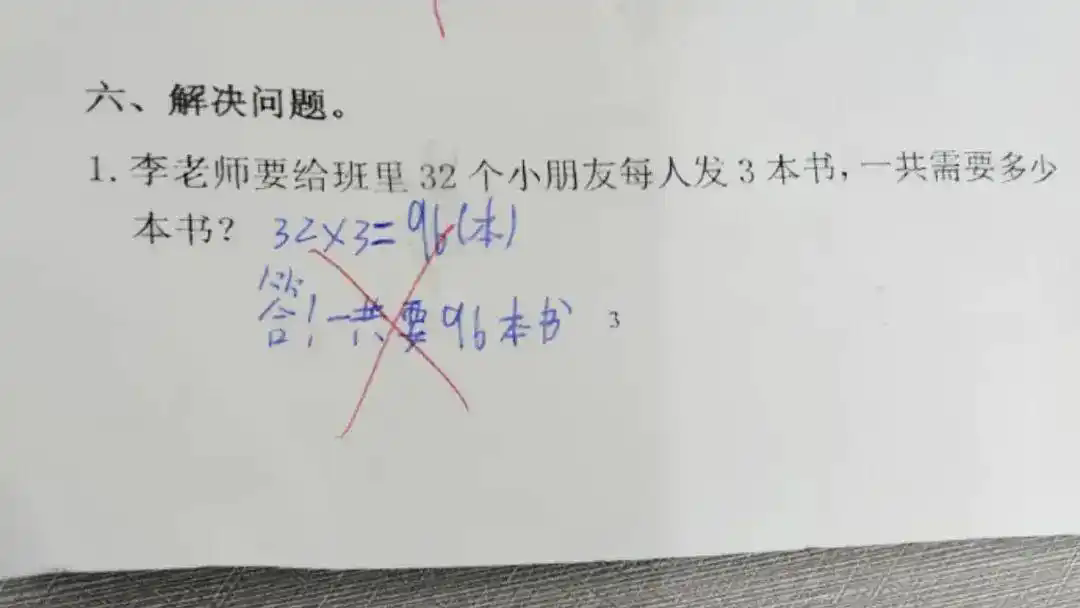 六、解决问题。
1. 李老师要给班里 32 个小朋友每人发 3 本书,一共需要多少
本书? 32×3=96(本)
答:一共要96本书 3